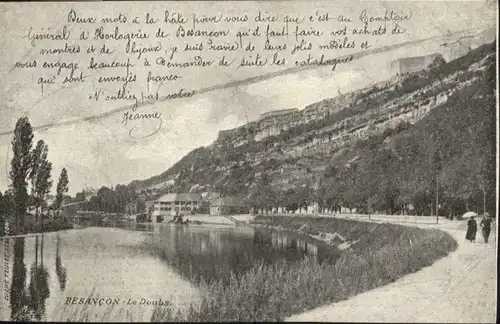 Deux mots à la hâte pour vous dire que c'est au Comptoir
Général d'Horlogerie de Besançon qu'il faut faire vos achats de
montres et de bijoux, je suis ravie de leurs jolis modèles et
vous engage beaucoup à Demander de suite les catalogues
qui sont envoyés franco
N'oubliez pas votre
Jeanne
CLICHÉ TEULET-
BESANÇON - Le Doubs